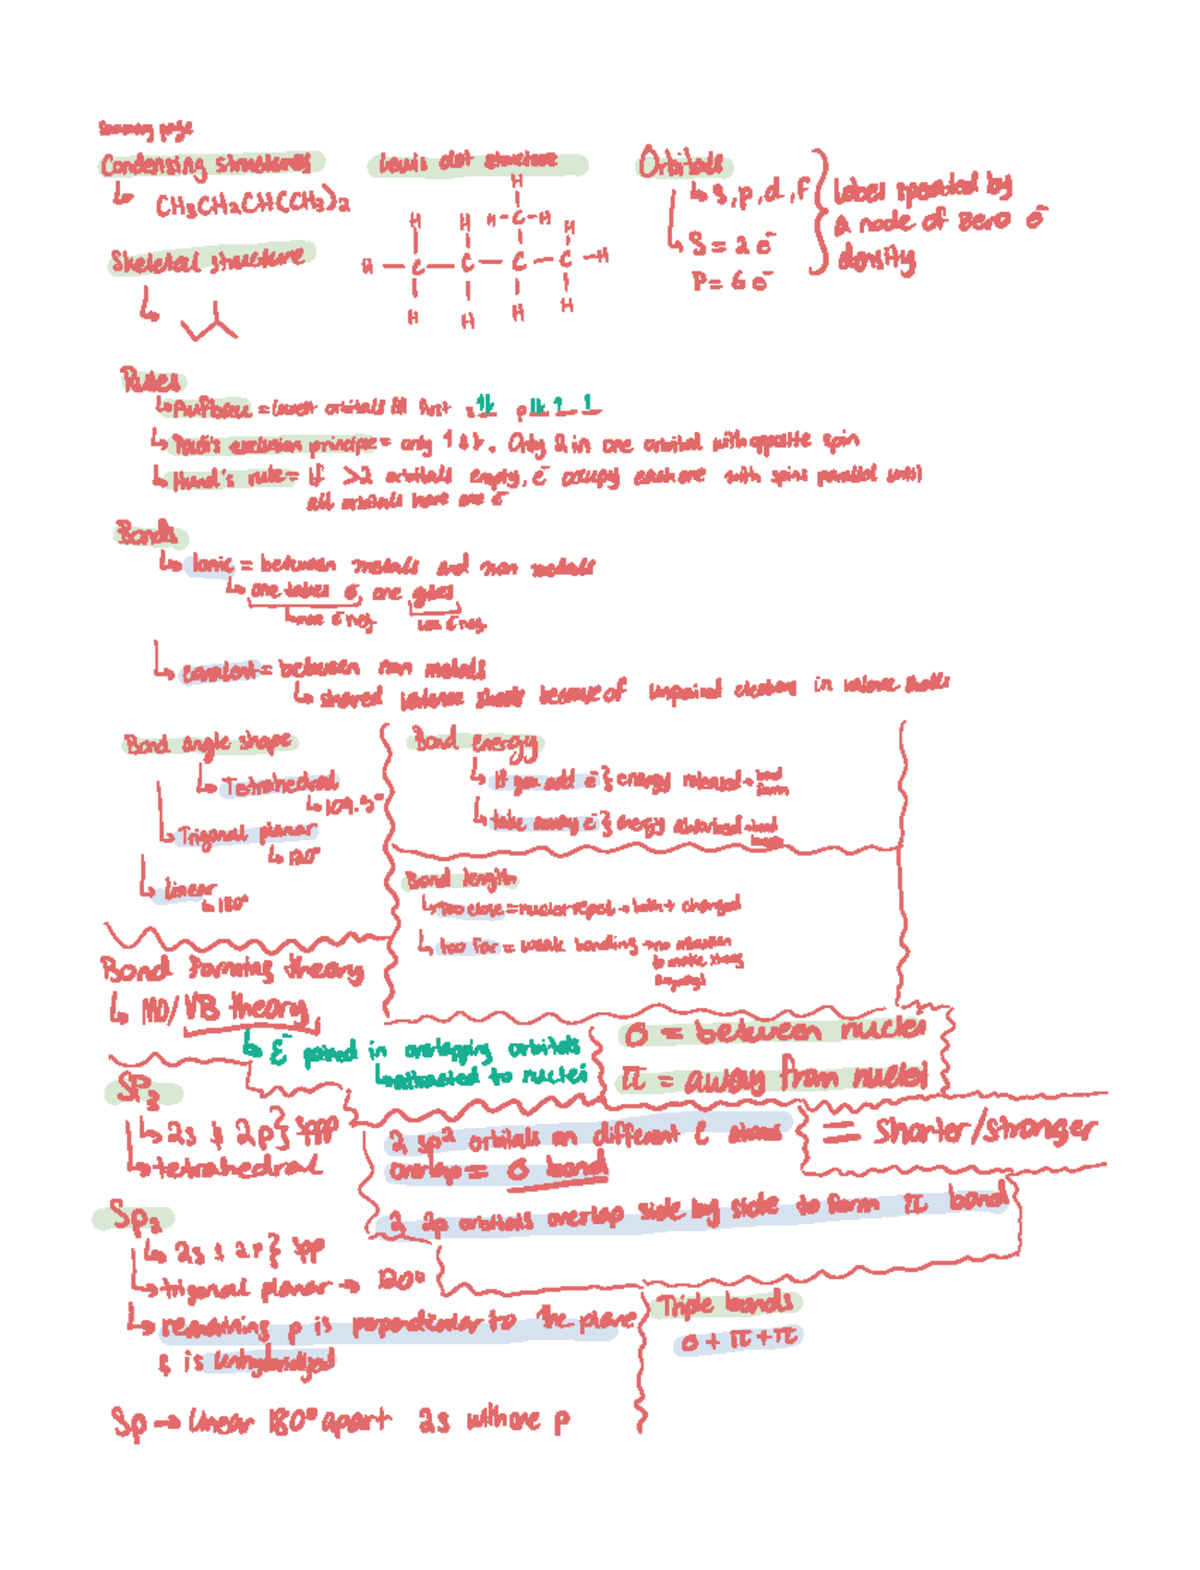 Summary page
Condensing structures
CH3CH2CH(CH3)2
Skeletal structure
Lewis dot structure
H
H H H-C-H H
H-C-C-C-C-H
H H H H
Orbitals
s, p, d, f
S = 2 e-
P = 6 e-
Label sperated by
a node of zero e-
density
Rules
Aufbau = lowest orbitals fill first s 1l p 1l 1 1
Pauli's exclusion principle = only 1 & l. Only 2 in one orbital with opposite spin
Hund's rule = if >2 orbitals empty, e- occupy each one with spins parallel until
all orbitals have one e-
Bonds
Ionic = between metals and non metals
one takes e-, one gives
covalent = between non metals
shared valence shells because of unpaired electrons in valence shells
Bond angle shape
Tetrahedral
109.5°
Trigonal planar
120°
Linear
180°
Bond energy
If you add e- } energy released → bond
form
take away e- } energy absorbed → bond
Bond length
too close = nuclei repel → both + charged
too far = weak bonding → no attraction
to make strong
Bond forming theory
MO/VB theory
E- paired in overlapping orbitals
attracted to nuclei
σ = between nuclei
π = away from nuclei
SP3
2s & 2p } sppp
tetrahedral
2 sp2 orbitals on different C atoms
overlap = σ bond
2 2p orbitals overlap side by side to form π bond
= shorter/stronger
Sp2
2s & 2p } spp
trigonal planar → 120°
remaining p is perpendicular to the plane
& is unhybridized
Triple bonds
σ + π + π
Sp → linear 180° apart 2s with one p